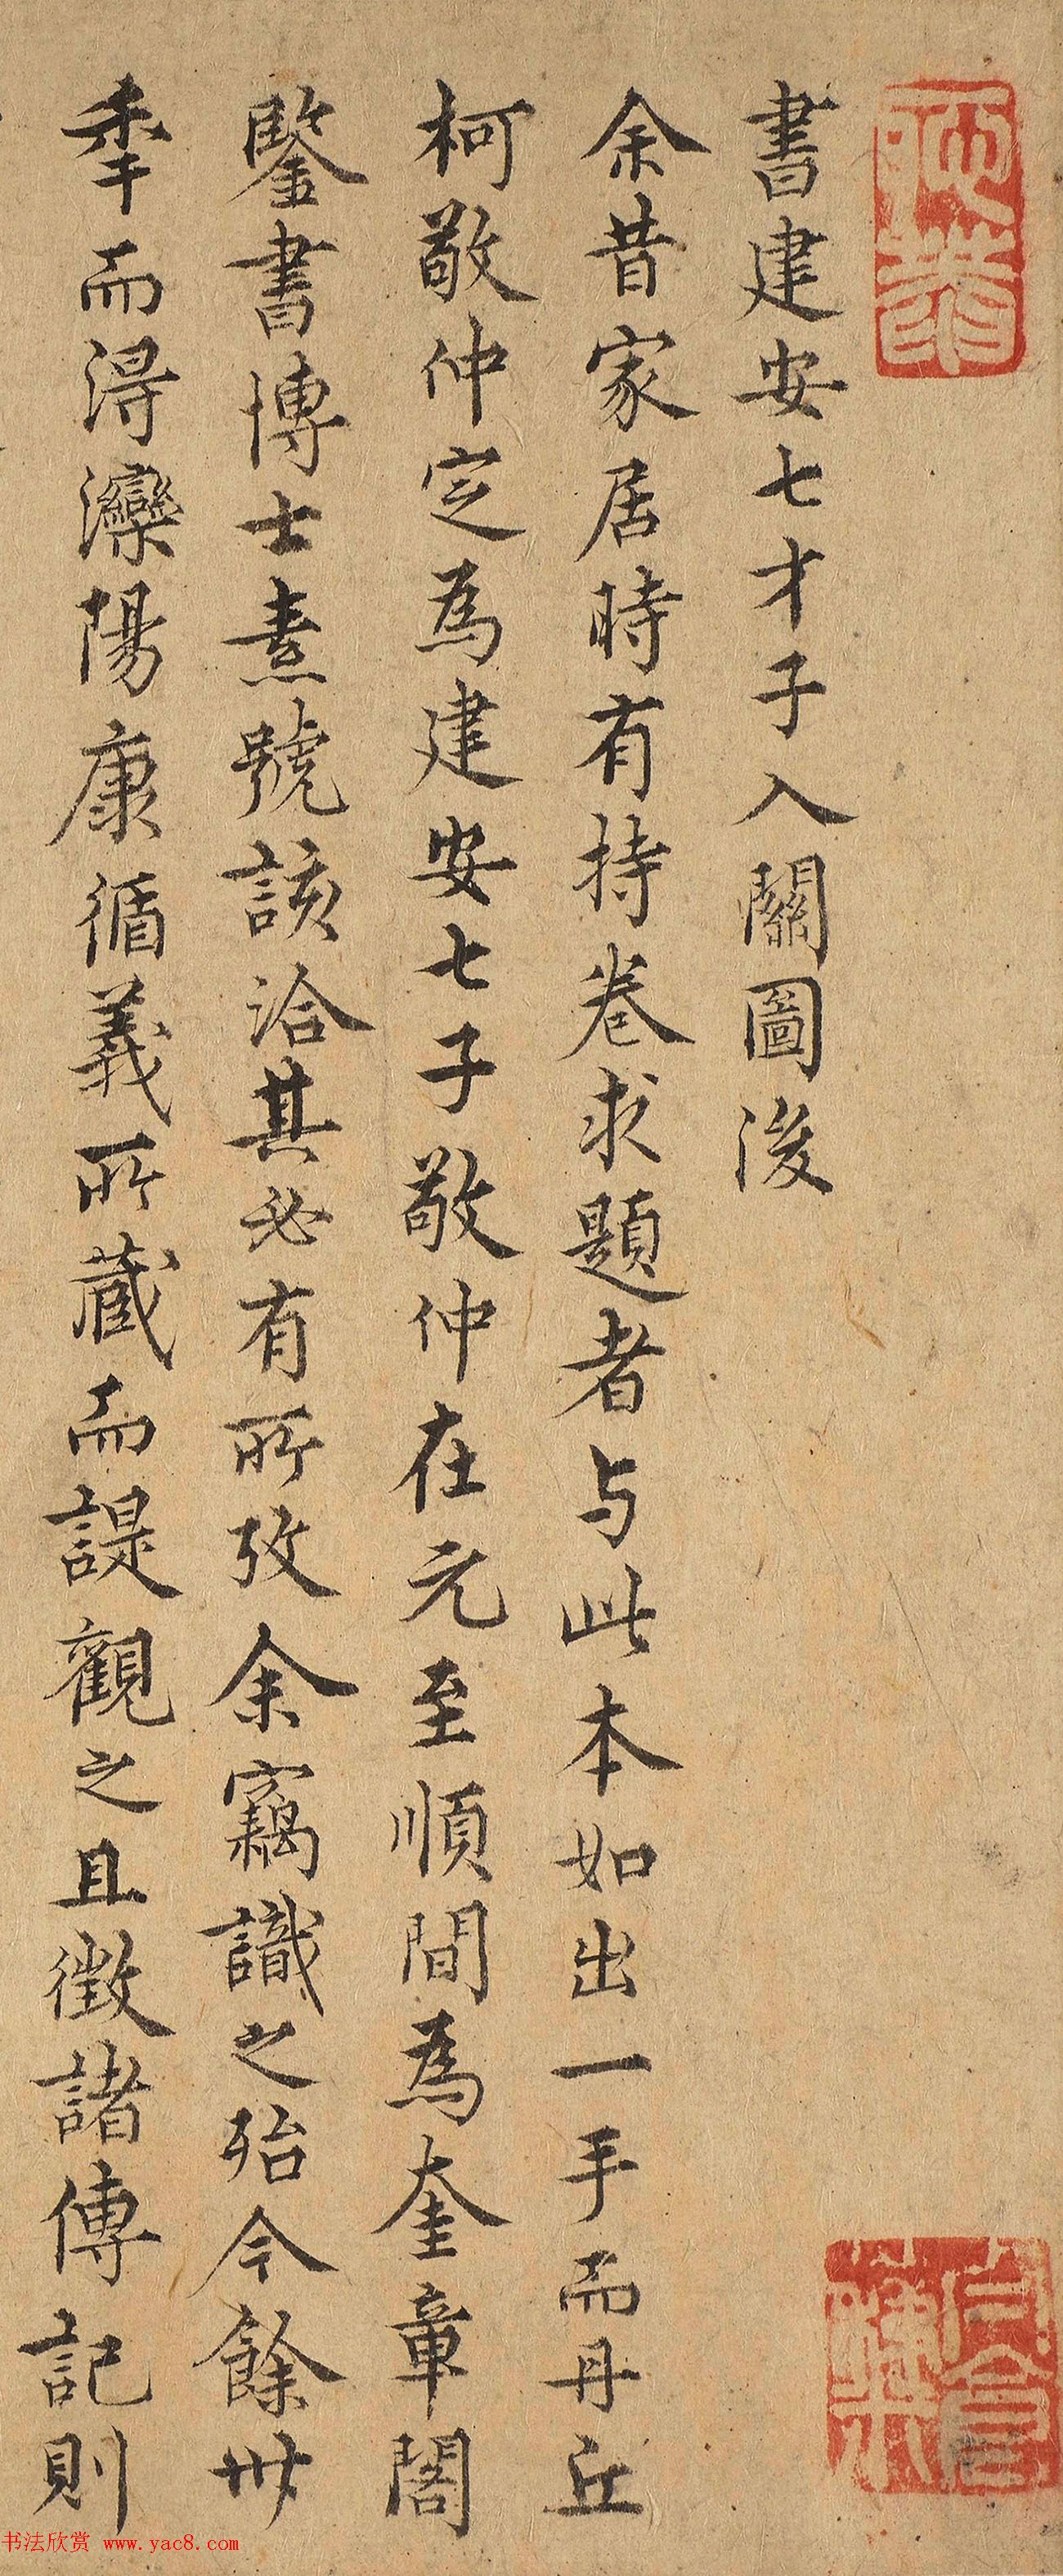 書建安七才子入關圖後
余昔家居時有持卷求題者与此本如出一手而丹丘
柯敬仲定為建安七子敬仲在元至順間為奎章閣
鑒書博士素號該洽其必有所攷余竊識之殆今餘卅
秊而得灤陽康循義所藏而諟觀之且徴諸傳記則
书法欣赏 www.yac8.com